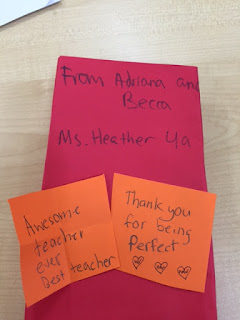 From Adriana and
Becca
Ms. Heather Ya
Awesome
teacher
ever
best teacher
Thank you
for being
Perfect